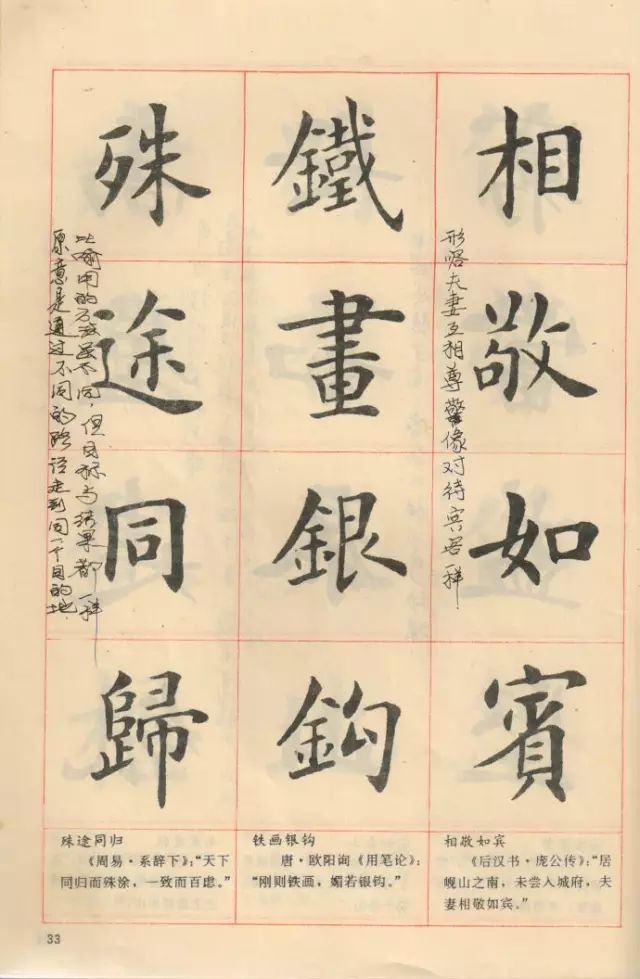 相敬如賓
形容夫妻互相尊敬像对待宾客一样
鐵畫銀鈎
殊途同歸
比喻用的方法虽不同，但目标与结果都一样
原意是通过不同的路径走到同一个目的地
相敬如宾
《后汉书·庞公传》：“居
岘山之南，未尝入城府，夫
妻相敬如宾。”
铁画银钩
唐·欧阳询《用笔论》：
“刚则铁画，媚若银钩。”
殊途同归
《周易·系辞下》：“天下
同归而殊涂，一致而百虑。”
33